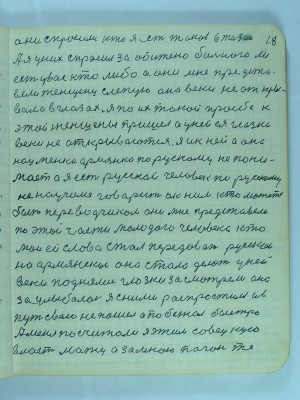 18
они спросили кто я ест таков
А я у них спросил за обижено больного ли
есть у вас кто либо а они мне предста-
вели женщену слепую она веки не откры-
вала в глазах, я по их такой просьбе к
этой женщены пришел а у ней и глазки
веки не открываются, я и к ней а она
научена армянка по русскому не пони-
мает а я ест руской человек по русскому
не научился говарит я к ним кто может
быт переводчиком они мне представели
по этой части молодого человека кто
мои ей слова стал передоват русския
на армянския она стала делат у ней
веки подняли глазки засмотрели она
заулыбалас я с ними распростилься в
пут свой не пошел а побежал быстро
А меня посчитали я жил совецкую
власт мать а за мною погон те